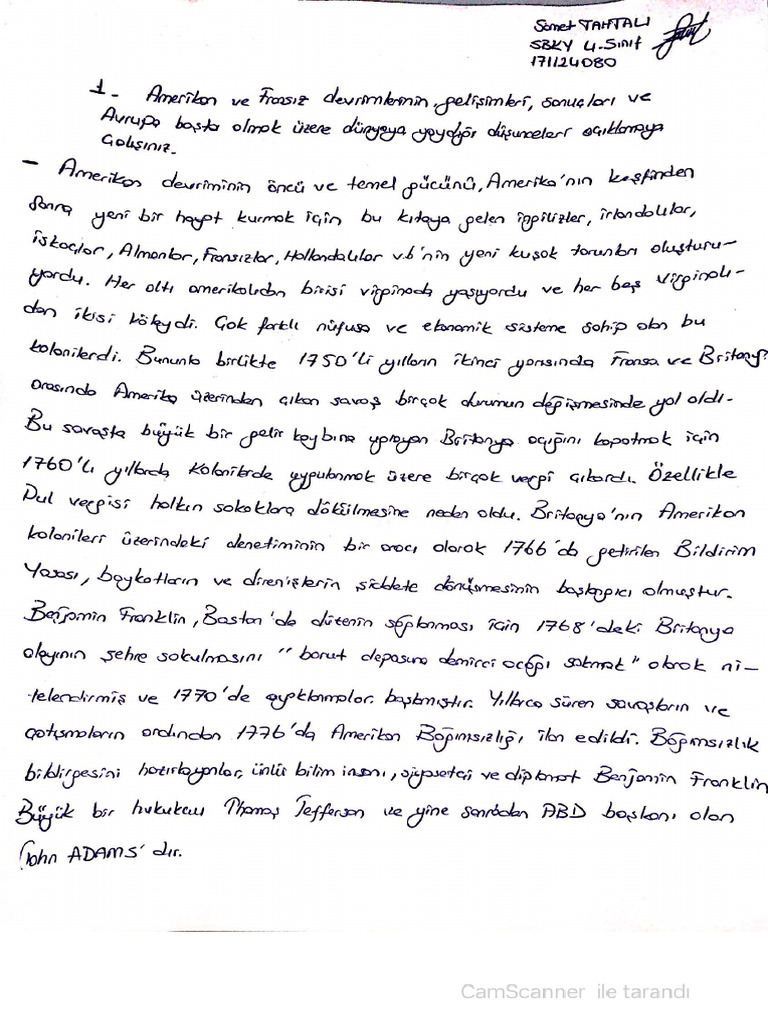 Samet TAHTALI
SBKY 4.Sınıf
171124080
1- Amerikan ve Fransız devrimlerinin, gelişimleri, sonuçları ve
Avrupa başta olmak üzere dünyaya yaydığı düşünceleri açıklamaya
Çalışınız.
- Amerikan devriminin öncü ve temel gücünü, Amerika'nın keşfinden
sonra yeni bir hayat kurmak için bu kıtaya gelen ingilizler, irlandalılar,
iskoçlar, Almanlar, Fransızlar, Hollandalılar v.b'nin yeni kuşak torunları oluşturu-
yordu. Her altı amerikalıdan birisi virginada yaşıyordu ve her beş virginalı-
dan ikisi köleydi. Çok farklı nüfusa ve ekonomik sisteme sahip olan bu
kolonilerdi. Bununla birlikte 1750'li yılların ikinci yarısında Fransa ve Britanya
arasında Amerika üzerinden çıkan savaş birçok durumun değişmesinde yol oldı-
Bu savaşta büyük bir gelir kaybına uğrayan Britanya açığını kapatmak için
1760'lı yıllarda kolonilerde uygulanmak üzere birçok vergi çıkardı. Özellikle
Pul vergisi halkın sokaklara dökülmesine neden oldu. Britanya'nın Amerikan
kolonileri üzerindeki denetiminin bir aracı olarak 1766'da getirilen Bildirim
Yasası, boykotların ve direnişlerin şiddete dönüşmesinin başlangıcı olmuştur.
Benjamin Franklin, Boston'da düzenin sağlanması için 1768'deki Britanya
alayının şehre sokulmasını "barut deposuna demirci ocağı sokmak" olarak ni-
telendirmiş ve 1770'de ayaklanmalar başlamıştır. Yıllarca süren savaşların ve
çatışmaların ardından 1776'da Amerikan Bağımsızlığı ilan edildi. Bağımsızlık
bildirgesini hazırlayanlar, ünlü bilim insanı, siyasetçi ve diplomat Benjamin Franklin
Büyük bir hukukcu Thomas Jefferson ve yine sonradan ABD başkanı olan
John ADAMS'dır.
CamScanner ile tarandı